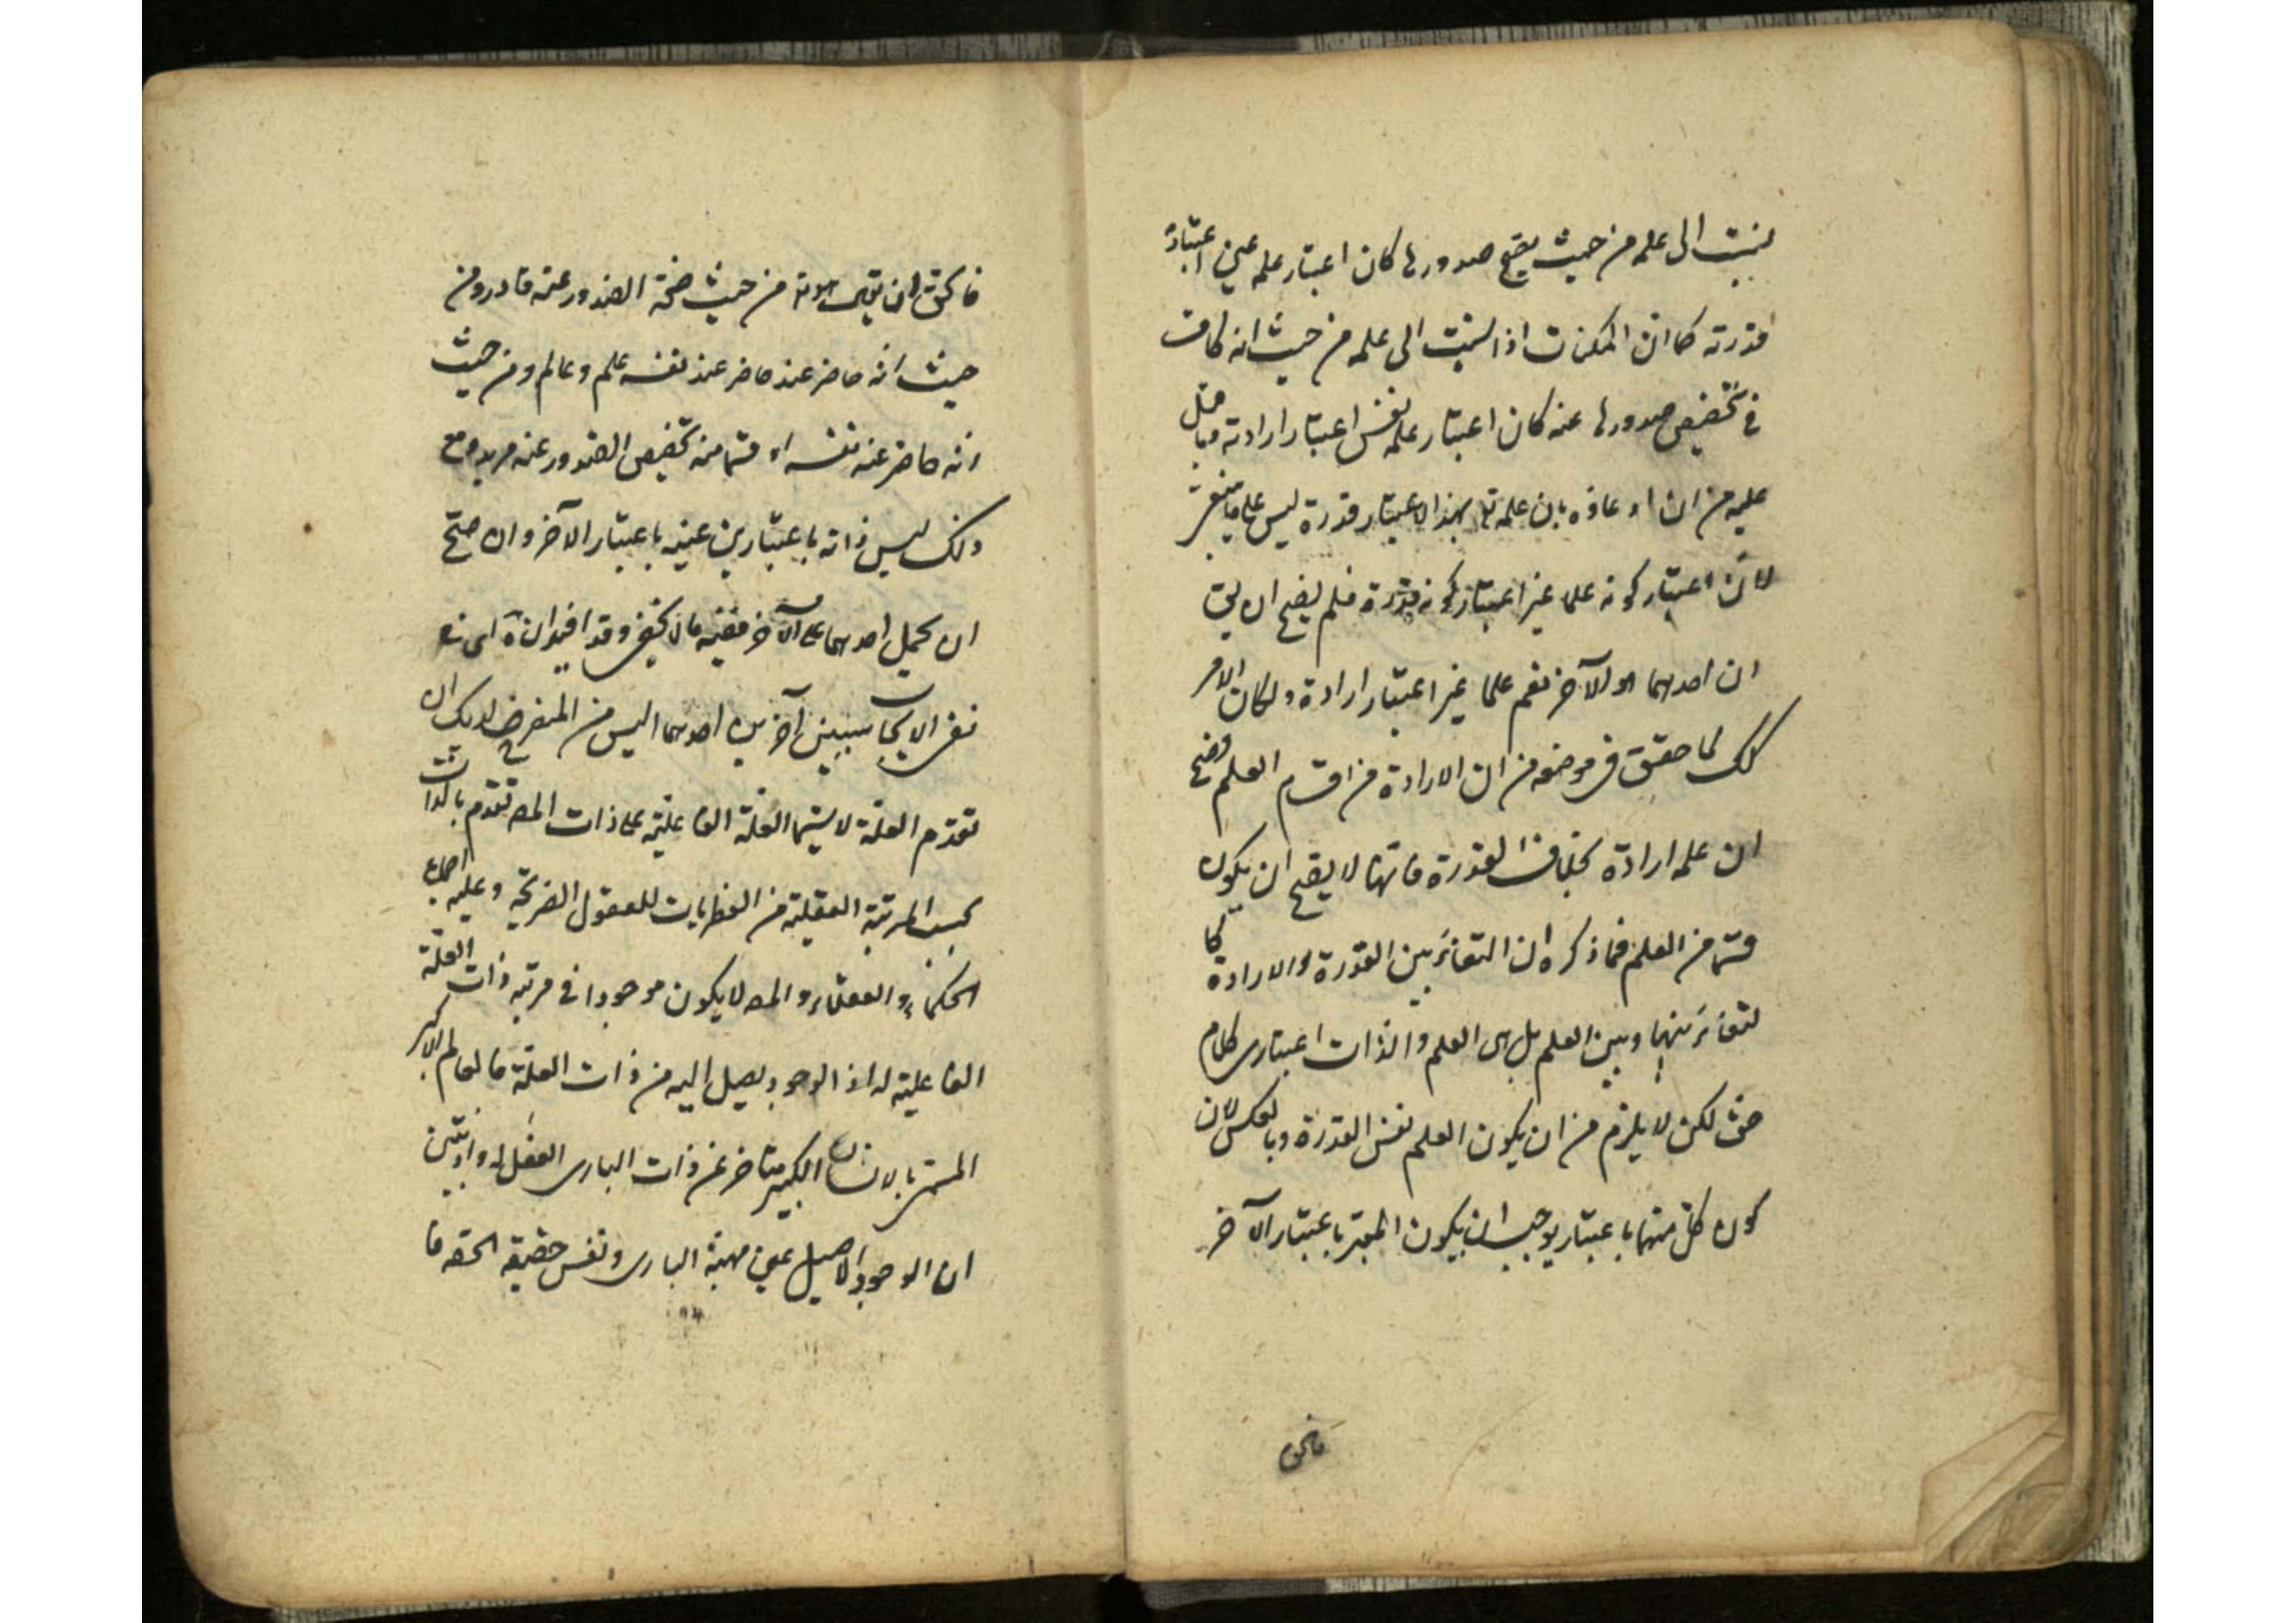 نسبت الى علمه من حيث يصح صدورها كان اعتبار علمه عين اعتبار
قدرته كما ان الممكنات اذا نسبت الى علمه من حيث انه كافت
في تخصيص صدورها عنه كان اعتبار علمه نفس اعتبار ارادته وما قيل
عليه من ان ادعاؤه بان علمه تع بهذا الاعتبار قدرة ليس على ما ينبغي
لان اعتبار كونه علما غير اعتبار كونه قدرة فلم يصح ان يق
ان احدهما هو الآخر نعم علما غير اعتبار ارادة ولكان الامر
كك لما حقق في موضعه من ان الارادة من اقسام العلم فصح
ان علمه ارادة بخلاف القدرة فانها لا يصح ان يكون
قسما من العلم فما ذكره ان التغاير بين القدرة والارادة كما
لتغاير بينها وبين العلم بل هى العلم والذات اعتبارى كلام
حق لكن لا يلزم من ان يكون العلم نفس القدرة وبالعكس لان
كون كل منهما باعتبار يوجب ان يكون المعتبر باعتبار الآخر
فالحق
فالحق ان يق هوية من حيث صحة الصدور عنه قادر ومن
حيث انه حاضر عند حاضر عند نفسه علم وعالم ومن حيث
انه حاضر عنه نفسه او قسما منه تخصيص الصدور عنه مريد ومع
ذلك ليس ذاته باعتبارين عينه باعتبار الآخر وان صح
ان يحمل احدهما على الآخر ففيه ما لا يخفى وقد افيد ان
نفى الايجاب سبيلين آخرين احدهما اليس من المنفرض لديك ان
تقدم العلة لا سيما العلة الفاعلية على ذات المعـ تقدم بالذات
بحسب المرتبة العقلية من الفطريات للعقول الصريحة وعليه اجماع
الحكماء والعقلاء والمعـ لا يكون موجودا في مرتبة ذات العلة
الفاعلية له اذ الوجود يصل اليه من ذات العلة فالعالم الاكبر
المسمى بالانسان الكبير متاخر عن ذات البارى الفعال له واذ تبين
ان الوجود الاصيل عين مهية البارى ونفس حقيقة الحقه فا